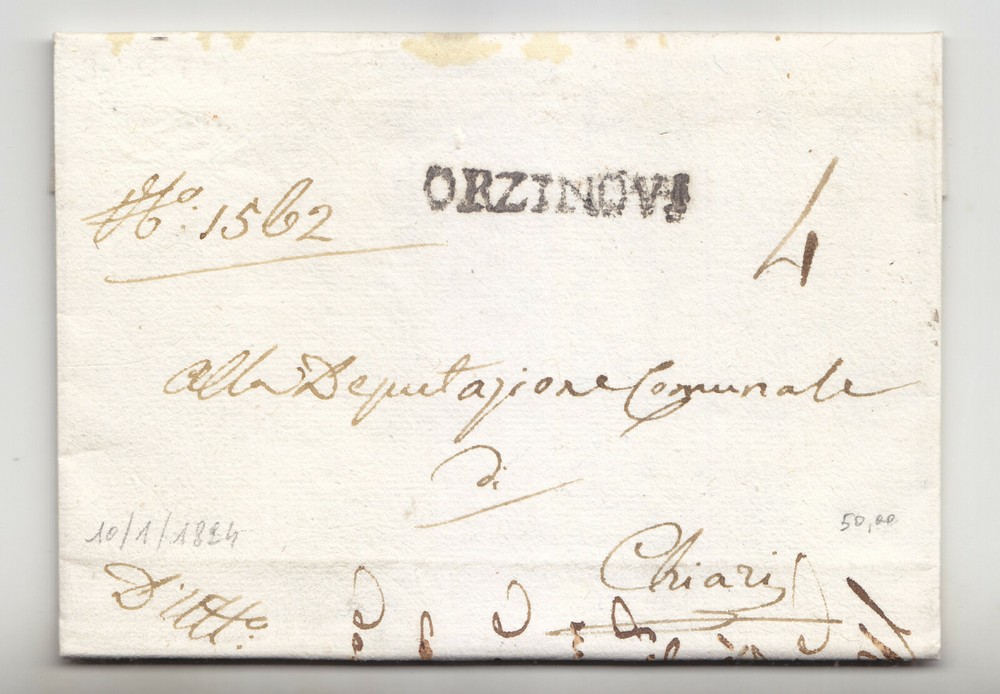 ORZINOVJ
No. 1562
4
Alla Deputazione Comunale
di
Chiari
10/1/1824
50,00
D'Uffo.